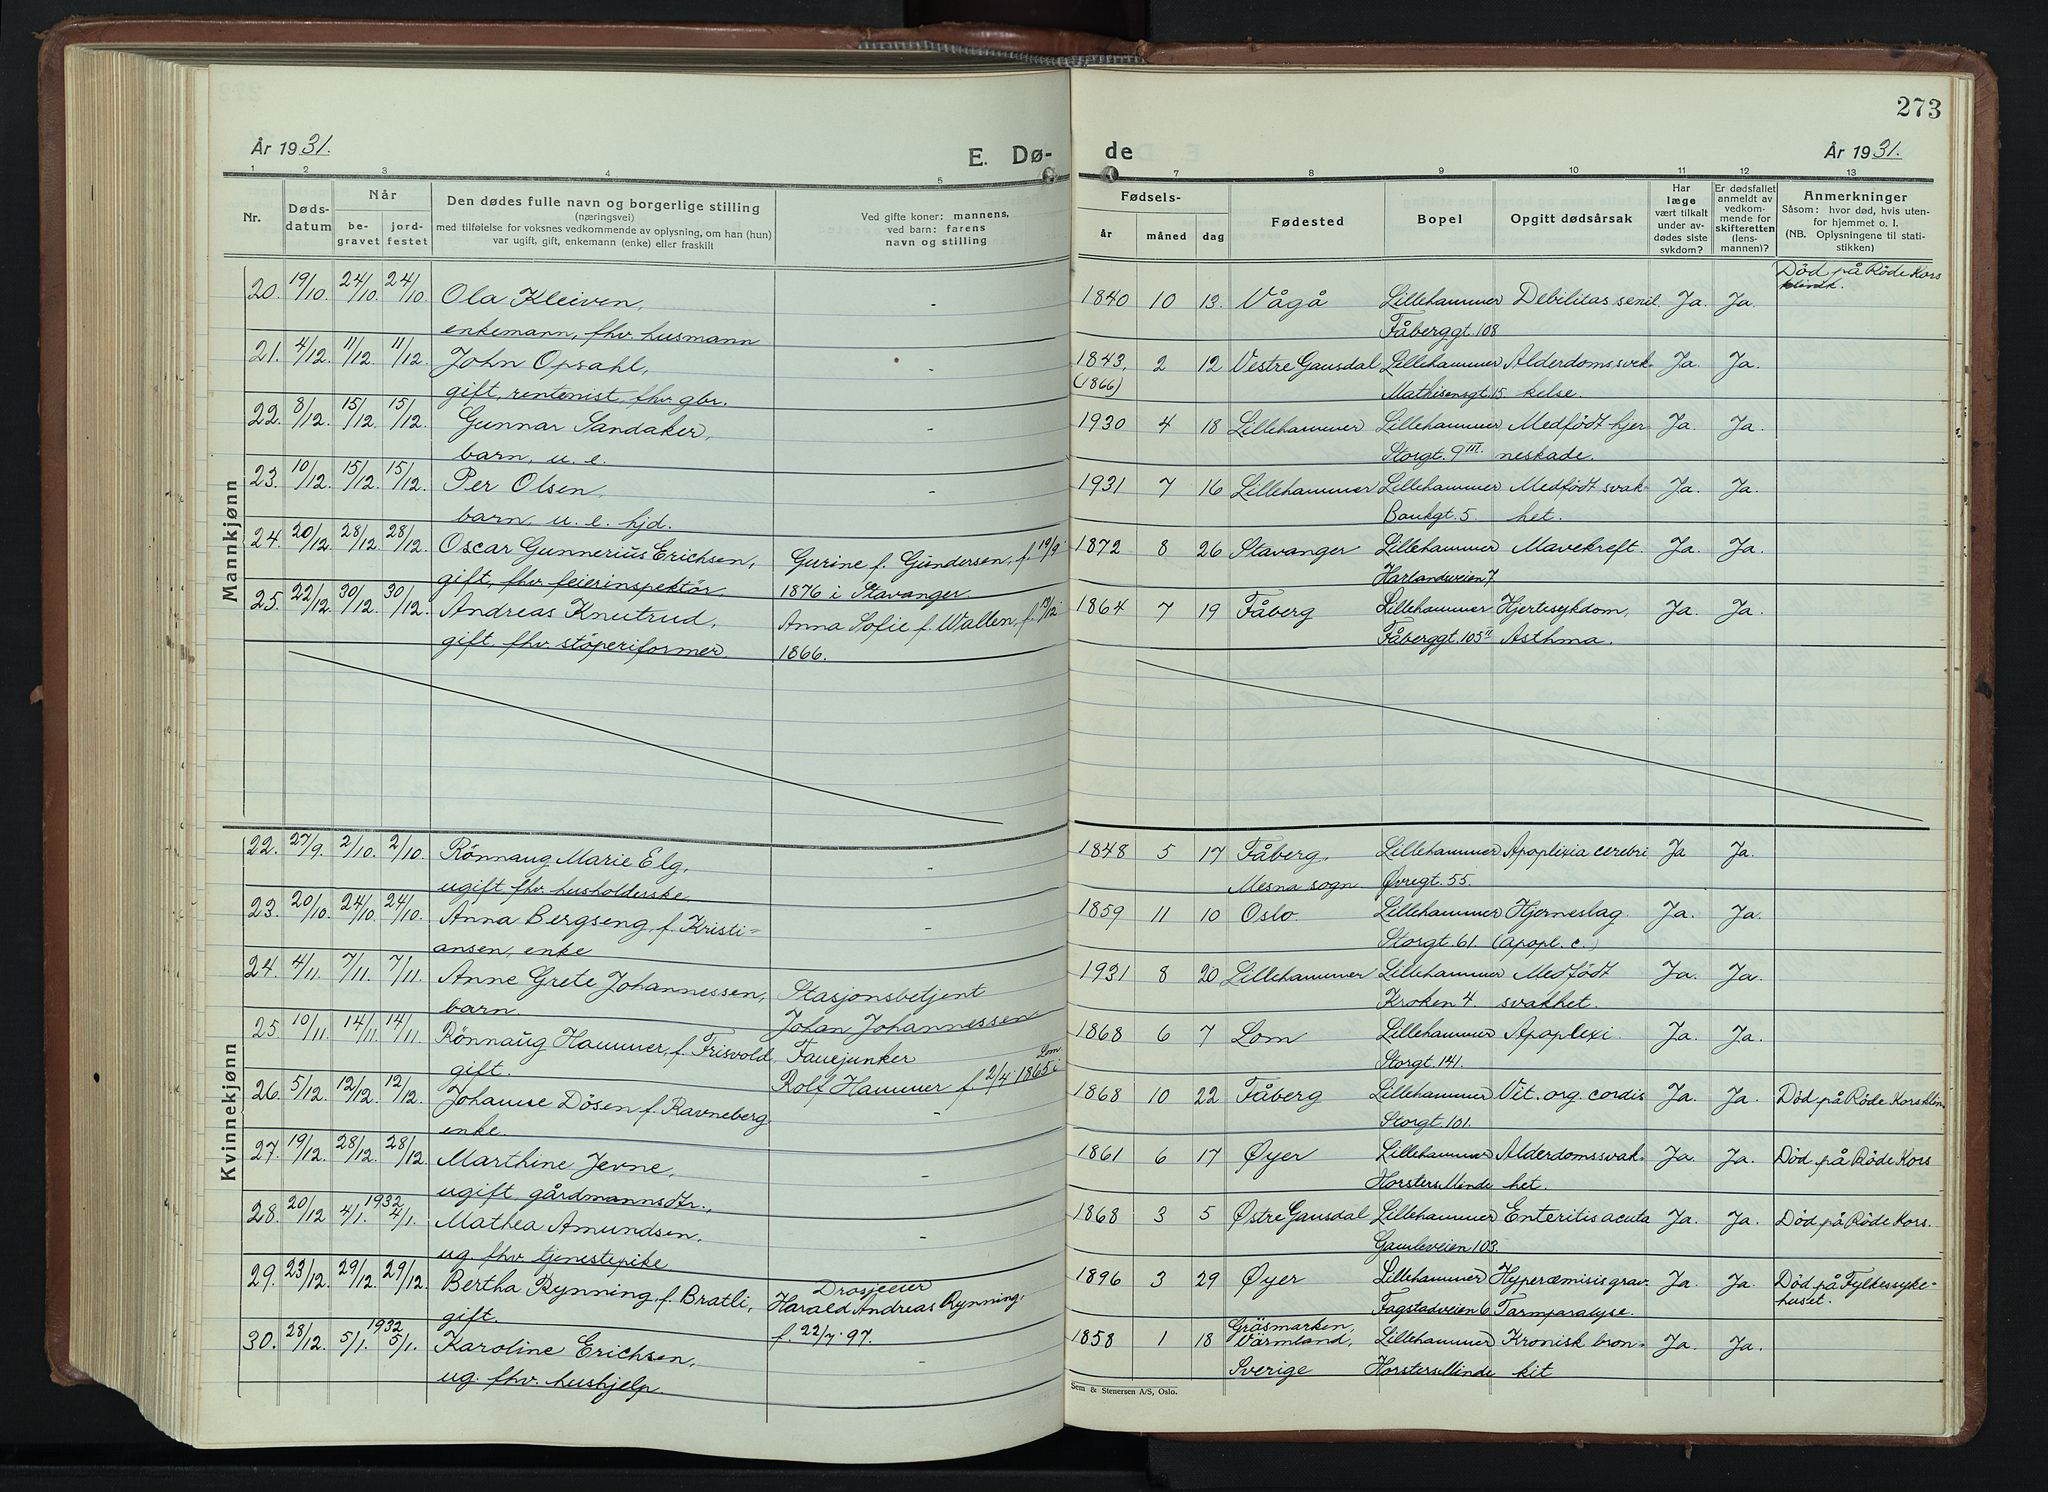 273
År 1931.
E. Dø-
de
År 1931.
1 2 3 4 5 7 8 9 10 11 12 13
Nr.
Døds-
datum
Når
be-
gravet
jord-
festet
Den dødes fulle navn og borgerlige stilling
(næringsvei)
med tilføielse for voksnes vedkommende av oplysning, om han (hun)
var ugift, gift, enkemann (enke) eller fraskilt
Ved gifte koner: mannens,
ved barn: farens
navn og stilling
Fødsels-
år
måned
dag
Fødested
Bopel
Opgitt dødsårsak
Har
læge
vært tilkalt
under av-
dødes siste
sykdom?
Er dødsfallet
anmeldt av
vedkom-
mende for
skifteretten
(lens-
mannen)?
Anmerkninger
Såsom: hvor død, hvis uten-
for hjemmet o. l.
(NB. Oplysningene til stati-
stikken)
Mannkjønn
20. 19/10. 24/10. 24/10. Ola Kleiven, - 1840 10 13. Vågå Lillehammer Debilitas senil. Ja. Ja. Död på Röde Kors
enkemann, fhv. husmann Fåberggt. 108 klinik.
21. 4/12. 11/12. 11/12. John Opsahl, - 1843, 2 12 Vestre Gausdal Lillehammer Alderdomssvek- Ja. Ja.
gift, rentenist, fhv. gbr. (1866) Mathisensgt. 15. kelse.
22. 8/12. 15/12. 15/12. Gunnar Sandaker, - 1930 4 18 Lillehammer Lillehammer Medfödt hjer- Ja. Ja.
barn, u. e. Storgt. 9 III. neskade.
23. 10/12. 15/12. 15/12. Per Olsen, - 1931 7 16 Lillehammer Lillehammer Medfödt svak- Ja. Ja.
barn, u. e. hjd. Bankgt. 5. het.
24. 20/12. 28/12. 28/12. Oscar Gunnerius Erichsen, Gurine f. Gundersen, f. 19/9. 1872 8 26 Stavanger Lillehammer Mavekreft. Ja. Ja.
gift, fhv. feierinspektör 1876 i Stavanger. Harlandsveien 7.
25. 22/12. 30/12. 30/12. Andreas Knutrud, Anna Sofie f. Wallen, f. 13/12. 1864 7 19 Fåberg Lillehammer Hjertesykdom, Ja. Ja.
gift, fhv. stöperiformer. 1866. Fåberggt. 105 II Asthma.
Kvinnekjønn
22. 27/9. 2/10. 2/10. Rönnaug Marie Elg, - 1848 5 17 Fåberg, Lillehammer Apoplexia cerebri Ja Ja.
ugift fhv. husholderske. Mesna sogn. Øvregt. 55.
23. 20/10. 24/10. 24/10. Anna Bergseng, f. Kristi- - 1859 11 10 Oslo. Lillehammer Hjerneslag. Ja. Ja.
ansen, enke Storgt. 61. (apopl. c.)
24. 4/11. 7/11. 7/11. Anne Grete Johannessen, Stasjonsbetjent 1931 8 20 Lillehammer Lillehammer Medfödt Ja. Ja.
barn. Johan Johannessen Kroken 4. svakhet.
25. 10/11. 14/11. 14/11. Rönnaug Hammer, f. Frisvold, Fanejunker 1868 6 7 Lom Lillehammer Apoplexi. Ja. Ja.
gift. Rolf Hammer f. 2/4 1865 i Lom Storgt. 141.
26. 5/12. 12/12. 12/12. Johanne Dösen f. Ravneberg, - 1868 10 22 Fåberg Lillehammer Vit. org. cordis Ja. Ja. Död på Röde Kors klin.
enke. Storgt. 101.
27. 19/12. 28/12. 28/12. Marthine Jevne, - 1861 6 17 Øyer Lillehammer Alderdomssvak- Ja. Ja. Död på Röde Kors
ugift, gårdmannsdtr., Horsters Minde het.
28. 20/12 4/1. 1932 4/1. Mathea Amundsen, - 1868 3 5 Østre Gausdal Lillehammer Enteritis acuta Ja. Ja. Död på Röde Kors.
ug. fhv. tjenestepike. Gamleveien 103.
29. 23/12. 29/12. 29/12. Bertha Rynning, f. Bratli, Drosjeeier 1896 3 29 Øyer Lillehammer Hyperæmisis grav. Ja. Ja. Död på Fylkessyke-
gift. Harald Andreas Rynning, Fagstadveien 6 Tarmparalyse. huset.
f. 22/7. 97.
30. 28/12. 5/1. 1932 5/1. Karoline Erichsen, - 1858 1 18 Gräsmarken, Lillehammer Kronisk bron- Ja. Ja.
ug. fhv. hushjelp. Värmland, Sverige Horsters Minde kit
Sem & Stenersen A/S, Oslo.